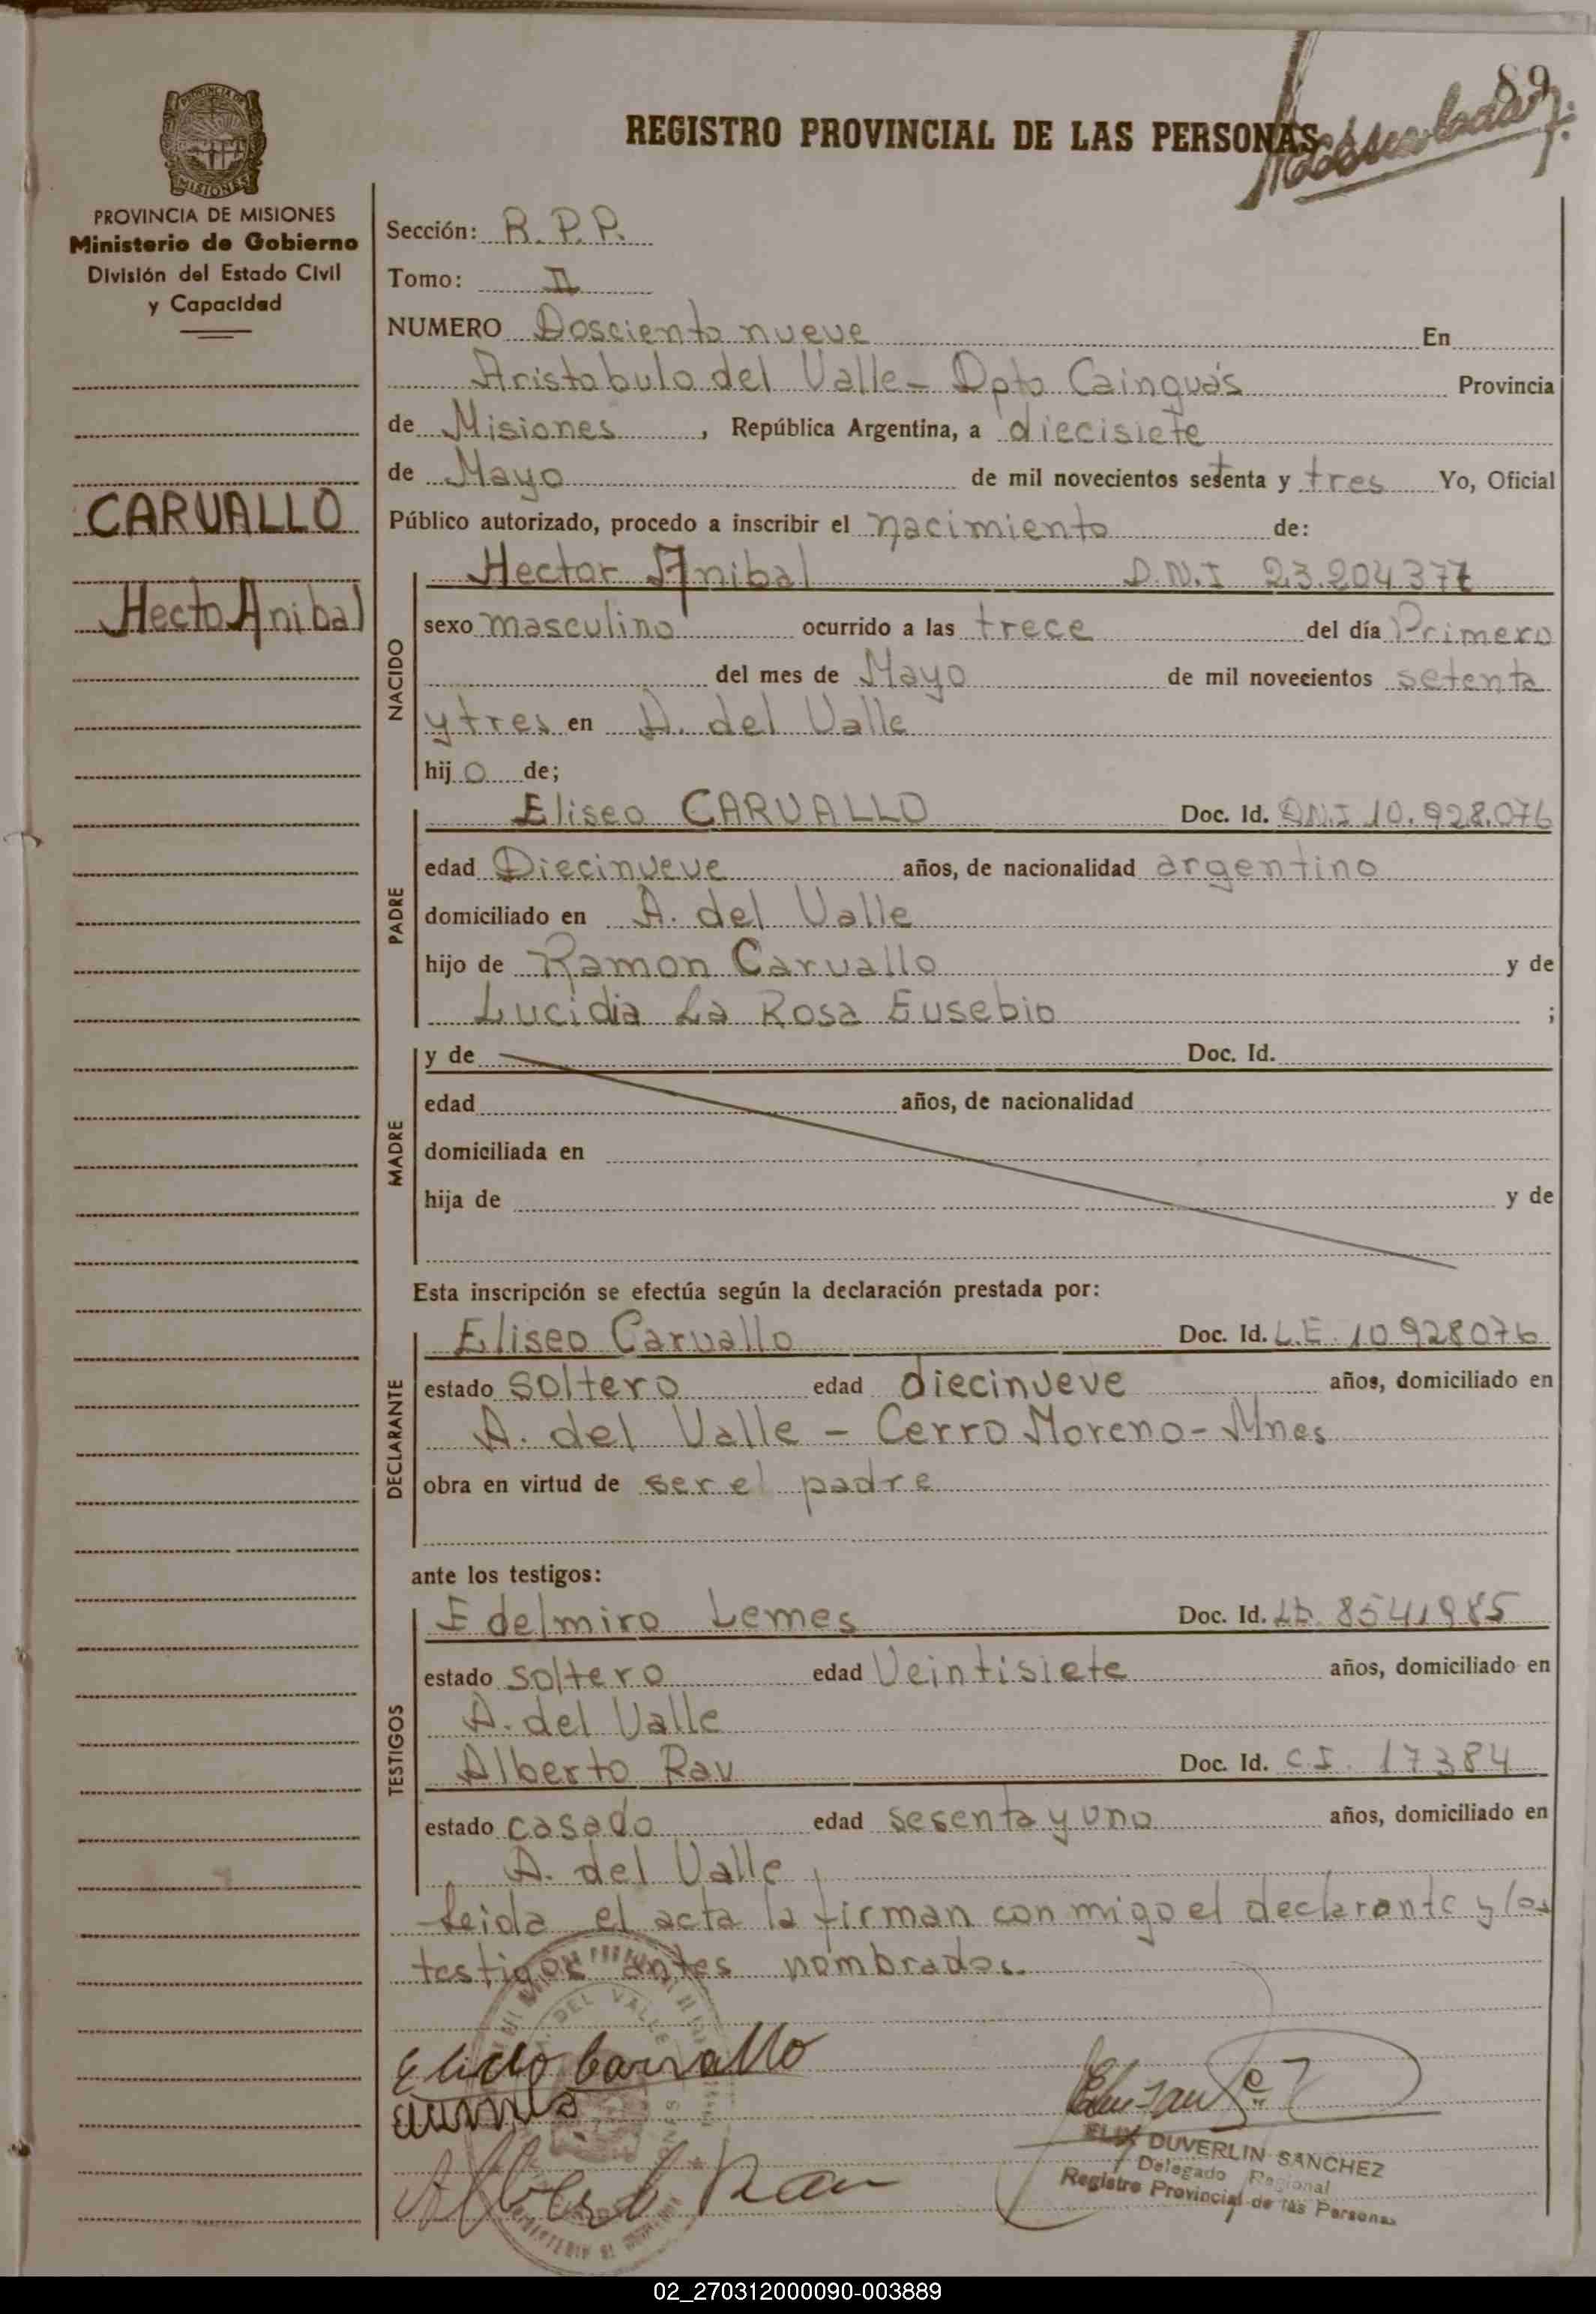 89
REGISTRO PROVINCIAL DE LAS PERSONAS
PROVINCIA DE MISIONES
Ministerio de Gobierno
División del Estado Civil
y Capacidad
CARVALLO
Hecto Anibal
Sección: R. P. P.
Tomo: II
NUMERO Dosciento nueve En
Aristobulo del Valle - Dpto Cainguás Provincia
de Misiones, República Argentina, a diecisiete
de Mayo de mil novecientos setenta y tres Yo, Oficial
Público autorizado, procedo a inscribir el nacimiento de:
NACIDO
Hector Anibal D.N.I 23.204377
sexo masculino ocurrido a las trece del día Primero
del mes de Mayo de mil novecientos setenta
y tres en A. del Valle
hijo de;
PADRE
Eliseo CARVALLO Doc. Id. D.N.I 10.928.076
edad Diecinueve años, de nacionalidad argentino
domiciliado en A. del Valle
hijo de Ramon Carvallo y de
Lucidia La Rosa Eusebio ;
MADRE
y de Doc. Id.
edad años, de nacionalidad
domiciliada en
hija de y de
Esta inscripción se efectúa según la declaración prestada por:
DECLARANTE
Eliseo Carvallo Doc. Id. L.E. 10.928076
estado soltero edad diecinueve años, domiciliado en
A. del Valle - Cerro Moreno - Mnes
obra en virtud de ser el padre
ante los testigos:
TESTIGOS
Edelmiro Lemes Doc. Id. 8541985
estado soltero edad Veintisiete años, domiciliado en
A. del Valle
Alberto Rau Doc. Id. C.I. 17384
estado casado edad sesenta y uno años, domiciliado en
A. del Valle
Leida el acta la firman con migo el declarante y los
testigos antes nombrados.
DEL VALLE
Carvallo
Albert Rau
DUVERLIN SANCHEZ
Delegado Regional
Registro Provincial de las Personas
02_270312000090-003889